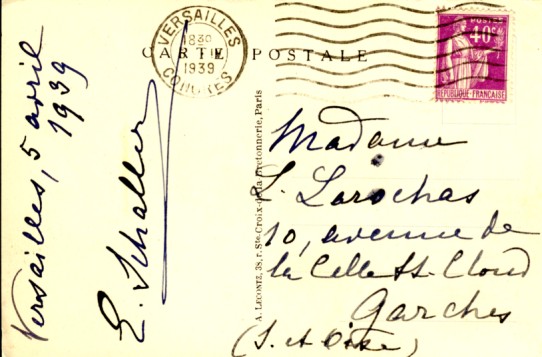 CARTE POSTALE
VERSAILLES
1830
1939
CONGRES
POSTES
40c
REPUBLIQUE FRANÇAISE
Versailles, 5 avril
1939
E. Schaller
A. LECONTE, 38, r. Ste-Croix-de-la-Bretonnerie, Paris
Madame
L. Larochas
10, avenue de
la Celle St-Cloud
Garches
(S. et Oise)